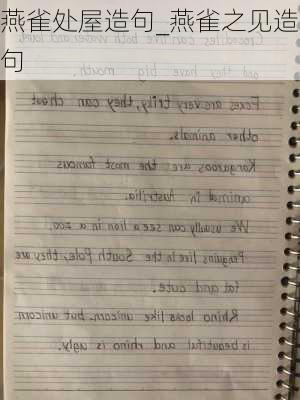 燕雀处屋造句_燕雀之见造句
Crocodiles can live both water and land
and they have big mouth.
Foxes are very triky, they can cheat
other animals.
Kangaroos are the most famous
animal in Austrilia.
We usually can see a lion in a zoo.
Penguins live in the South Pole, they are
fat and cute.
Rhino looks like unicorn, but unicorn
is beautiful and rhino is ugly.